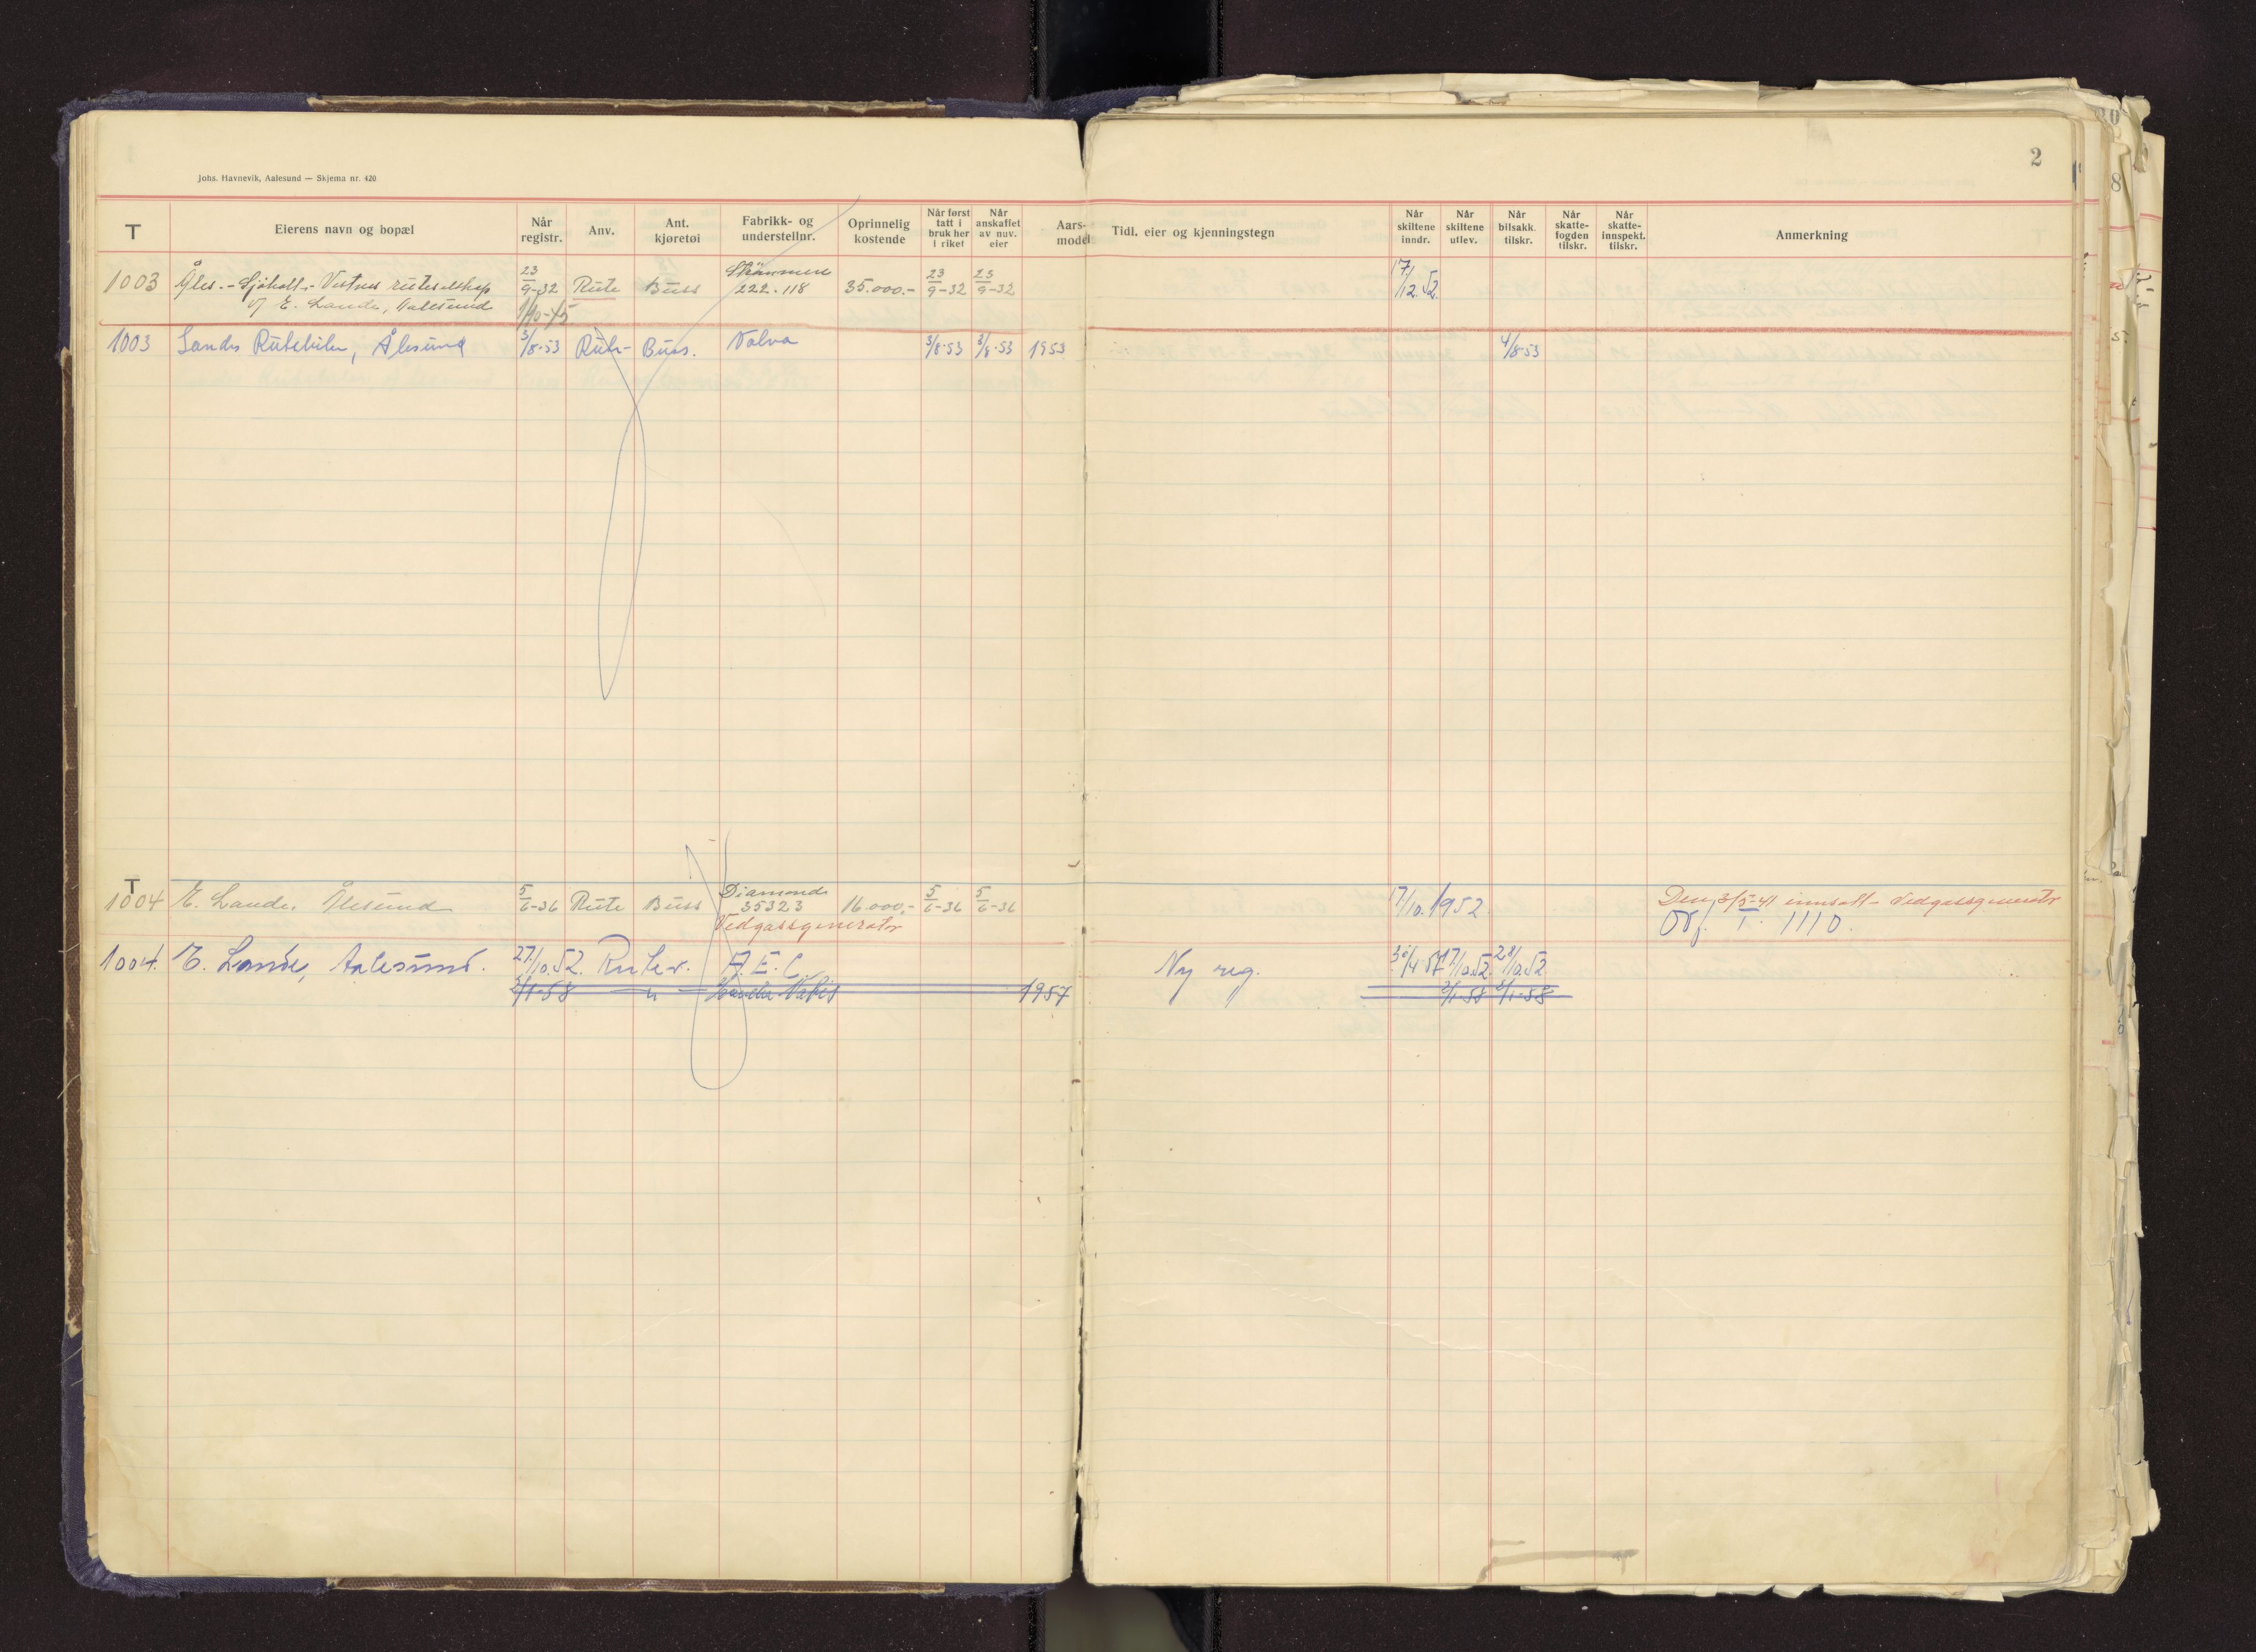 Johs. Havnevik, Aalesund — Skjema nr. 420
2
T
Eierens navn og bopæl
Når registr.
Anv.
Ant. kjøretøi
Fabrikk- og understellnr.
Oprinnelig kostende
Når først tatt i bruk her i riket
Når anskaffet av nuv. eier
Aars-model
Tidl. eier og kjenningstegn
Når skiltene inndr.
Når skiltene utlev.
Når bilsakk. tilskr.
Når skatte-fogden tilskr.
Når skatte-innspekt. tilskr.
Anmerkning
1003 Åles.-Sjøholt-Vestnes ruteselskap 23/9-32 Rute Buss Strømmen 222.118 35.000.- 23/9-32 23/9-32 17/12.52.
v/ E. Lande, Aalesund 1/10-45
1003 Landes Rutebiler, Ålesund 3/8-53 Rute- Buss. Volvo 3/8-53 3/8-53 1953 4/8-53
T
1004 E. Lande. Ålesund 5/6-36 Rute Buss Diamond 35323 16.000.- 5/6-36 5/6-36 17/10.1952 Den 3/5-41 innsatt Vedgassgenerator
Vedgassgenerator
T. 1110.
1004. E. Lande, Aalesund. 27/10.52. Rutev. A.E.C. Ny reg. 30/4 57 17/10.52. 28/10.52.
2/1-58 " 1957 2/1-58 2/1-58